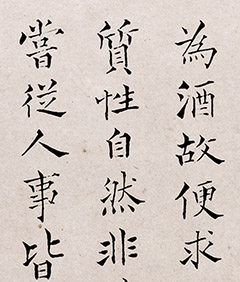 為酒故便求
質性自然非
嘗從人事皆